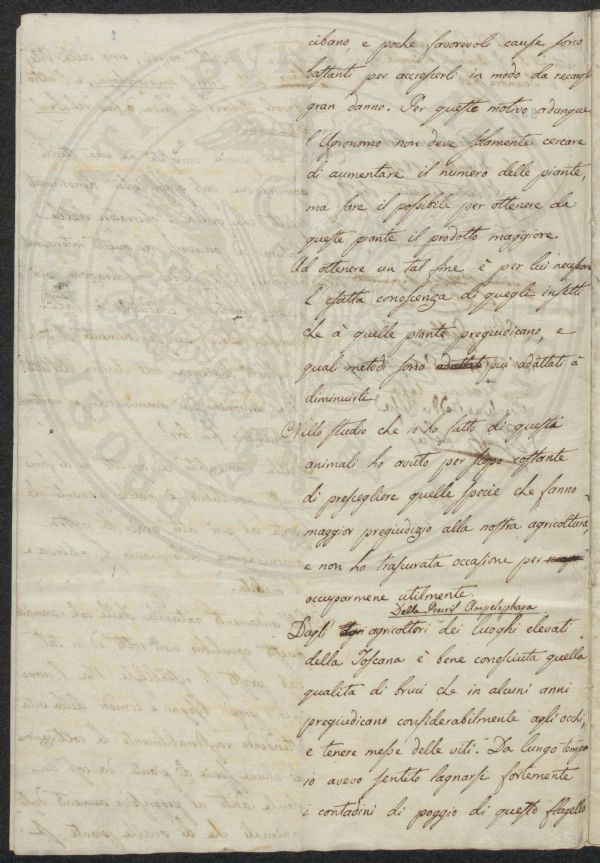 cibano, e poche favorevoli cause sono
bastanti per accrescerli in modo da recargli
gran danno. Per questo motivo adunque
l'Agronomo non deve solamente cercare
di aumentare il numero delle piante,
ma fare il possibile per ottenere da
queste piante il prodotto maggiore.
Ad ottenere un tal fine è per lui necessaria
l'esatta conoscenza di quegli insetti
che à quelle piante pregiudicano, e
quali metodi sono adattati più adattati à
diminuirli.
Nello studio che io ho fatto di questi
animali ho avuto per scopo costante
di prescegliere quelle specie che fanno
maggior pregiudizio alla nostra agricoltura,
e non ho trascurata occasione per
occuparmene utilmente.
Della Procris Ampelophaga
Dagli agricoltori dei luoghi elevati
della Toscana è bene conosciuta quella
qualità di bruci che in alcuni anni
pregiudicano considerabilmente agli occhi,
e tenere messe delle viti. Da lungo tempo
io avevo sentito lagnarsi fortemente
i contadini di poggio di questo flagello